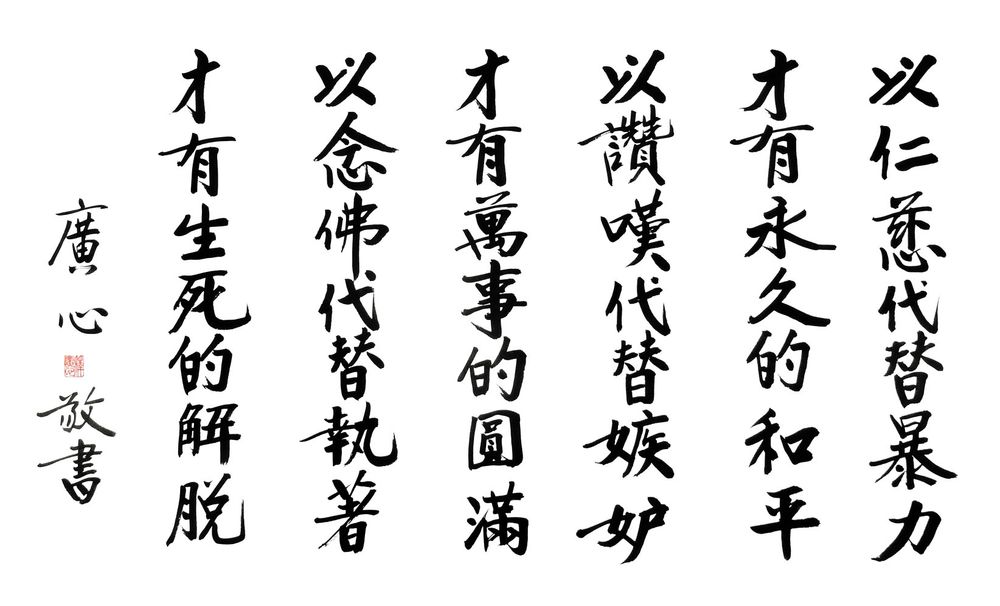 以仁慈代替暴力
才有永久的和平
以讚嘆代替嫉妒
才有萬事的圓滿
以念佛代替執著
才有生死的解脱
廣心 敬書